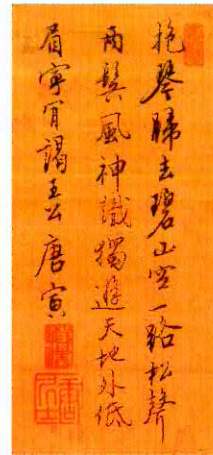 抱琴歸去碧山空一路松聲
兩鬢風神識獨遊天地外低
眉寧肯謁王公唐寅